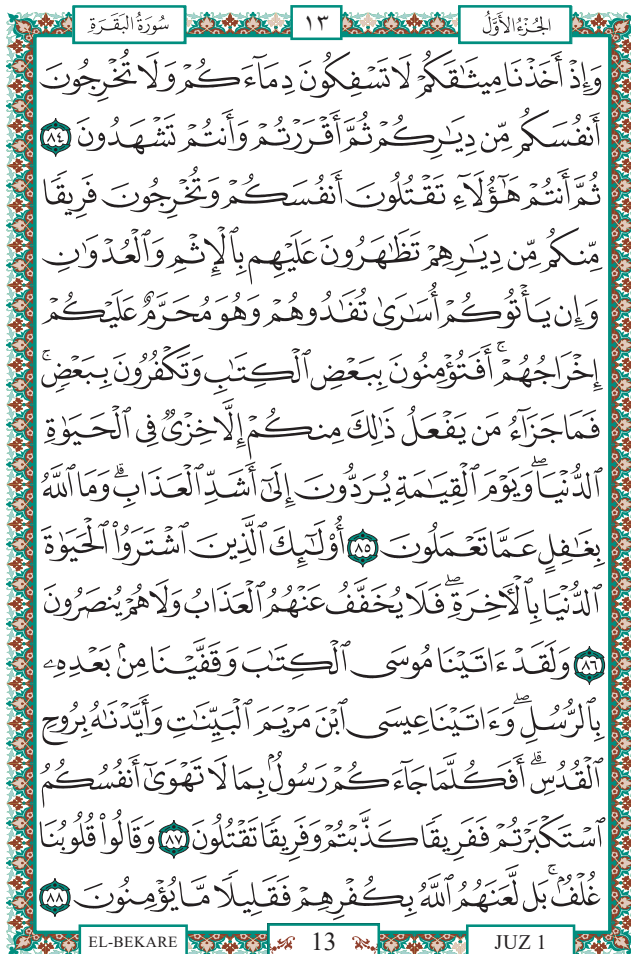 سُورَةُ البَقَرَةِ ١٣ الجُزْءُ الأَوَّلُ
وَإِذْ أَخَذْنَا مِيثَٰقَكُمْ لَا تَسْفِكُونَ دِمَآءَكُمْ وَلَا تُخْرِجُونَ
أَنفُسَكُم مِّن دِيَٰرِكُمْ ثُمَّ أَقْرَرْتُمْ وَأَنتُمْ تَشْهَدُونَ ٨٤
ثُمَّ أَنتُمْ هَٰٓؤُلَآءِ تَقْتُلُونَ أَنفُسَكُمْ وَتُخْرِجُونَ فَرِيقًا
مِّنكُم مِّن دِيَٰرِهِمْ تَظَٰهَرُونَ عَلَيْهِم بِٱلْإِثْمِ وَٱلْعُدْوَٰنِ
وَإِن يَأْتُوكُمْ أُسَٰرَىٰ تُفَٰدُوهُمْ وَهُوَ مُحَرَّمٌ عَلَيْكُمْ
إِخْرَاجُهُمْۚ أَفَتُؤْمِنُونَ بِبَعْضِ ٱلْكِتَٰبِ وَتَكْفُرُونَ بِبَعْضٍۚ
فَمَا جَزَآءُ مَن يَفْعَلُ ذَٰلِكَ مِنكُمْ إِلَّا خِزْىٌ فِى ٱلْحَيَوٰةِ
ٱلدُّنْيَاۖ وَيَوْمَ ٱلْقِيَٰمَةِ يُرَدُّونَ إِلَىٰٓ أَشَدِّ ٱلْعَذَابِۗ وَمَا ٱللَّهُ
بِغَٰفِلٍ عَمَّا تَعْمَلُونَ ٨٥ أُو۟لَٰٓئِكَ ٱلَّذِينَ ٱشْتَرَوُا۟ ٱلْحَيَوٰةَ
ٱلدُّنْيَا بِٱلْءَاخِرَةِۖ فَلَا يُخَفَّفُ عَنْهُمُ ٱلْعَذَابُ وَلَا هُمْ يُنصَرُونَ
٨٦ وَلَقَدْ ءَاتَيْنَا مُوسَى ٱلْكِتَٰبَ وَقَفَّيْنَا مِنۢ بَعْدِهِۦ
بِٱلرُّسُلِۖ وَءَاتَيْنَا عِيسَى ٱبْنَ مَرْيَمَ ٱلْبَيِّنَٰتِ وَأَيَّدْنَٰهُ بِرُوحِ
ٱلْقُدُسِۗ أَفَكُلَّمَا جَآءَكُمْ رَسُولٌۢ بِمَا لَا تَهْوَىٰٓ أَنفُسُكُمُ
ٱسْتَكْبَرْتُمْ فَفَرِيقًا كَذَّبْتُمْ وَفَرِيقًا تَقْتُلُونَ ٨٧ وَقَالُوا۟ قُلُوبُنَا
غُلْفٌۢۚ بَل لَّعَنَهُمُ ٱللَّهُ بِكُفْرِهِمْ فَقَلِيلًا مَّا يُؤْمِنُونَ ٨٨
EL-BEKARE 13 JUZ 1